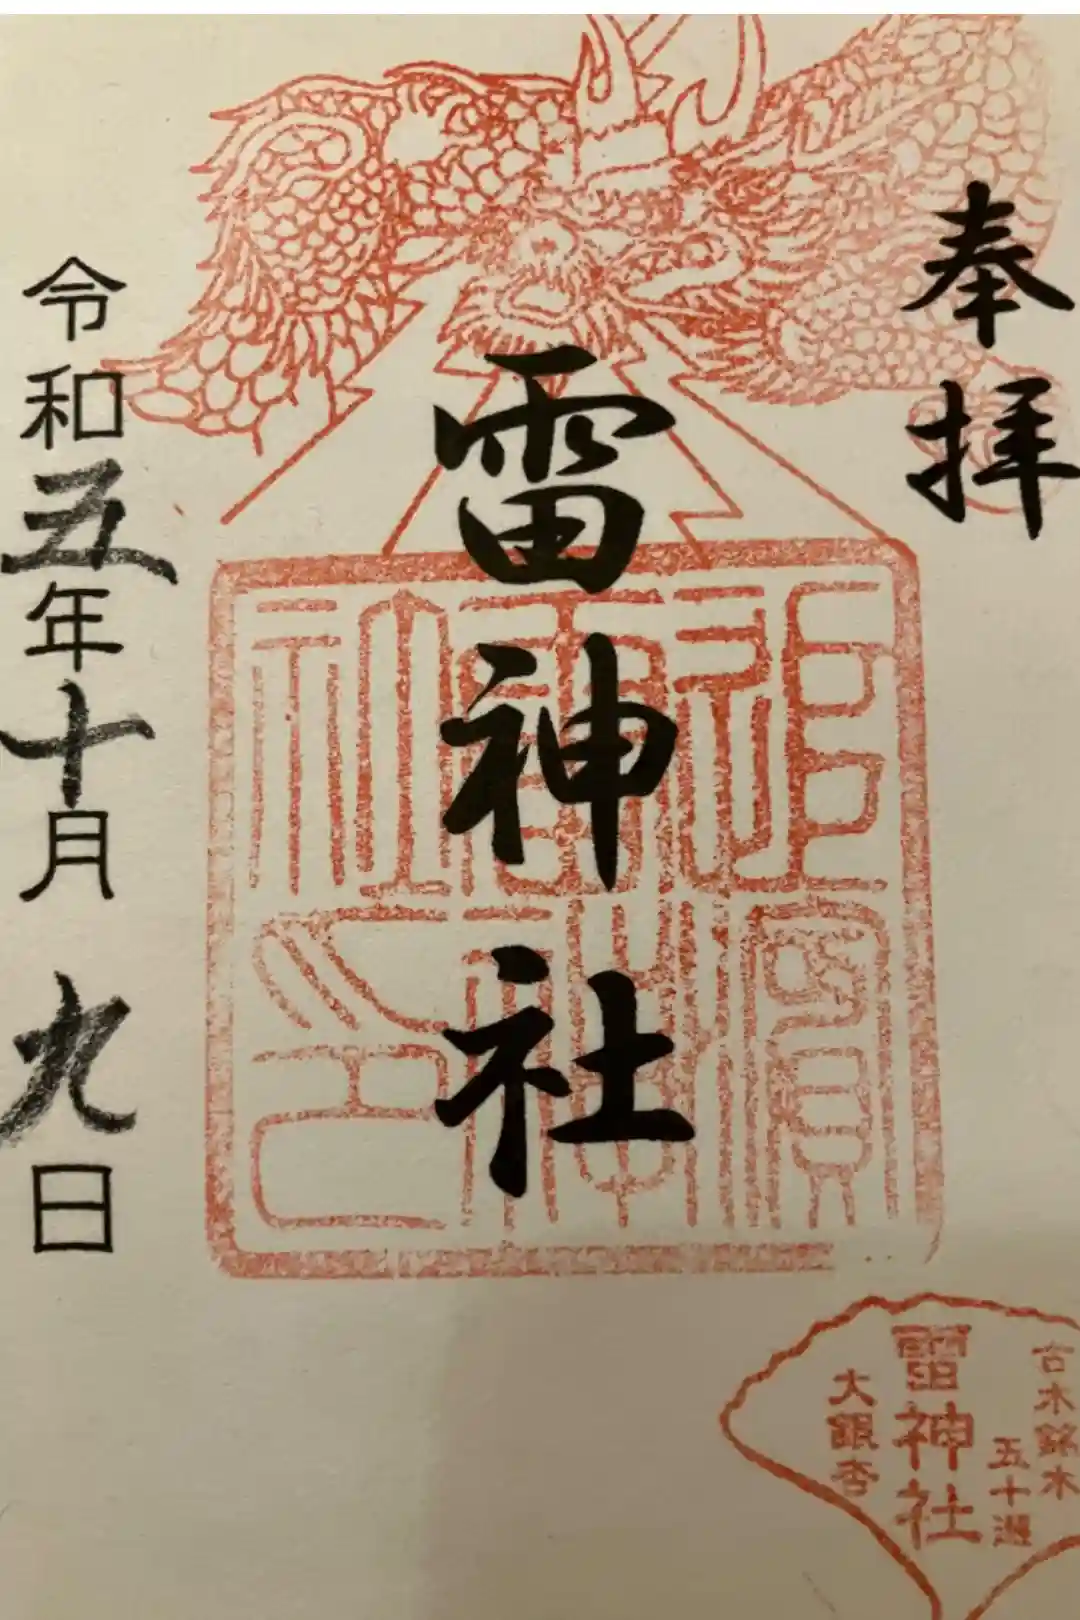 奉拝
雷神社
令和五年十月九日
追濱
雷神
社印
古木銘木
五十選
雷神社
大銀杏